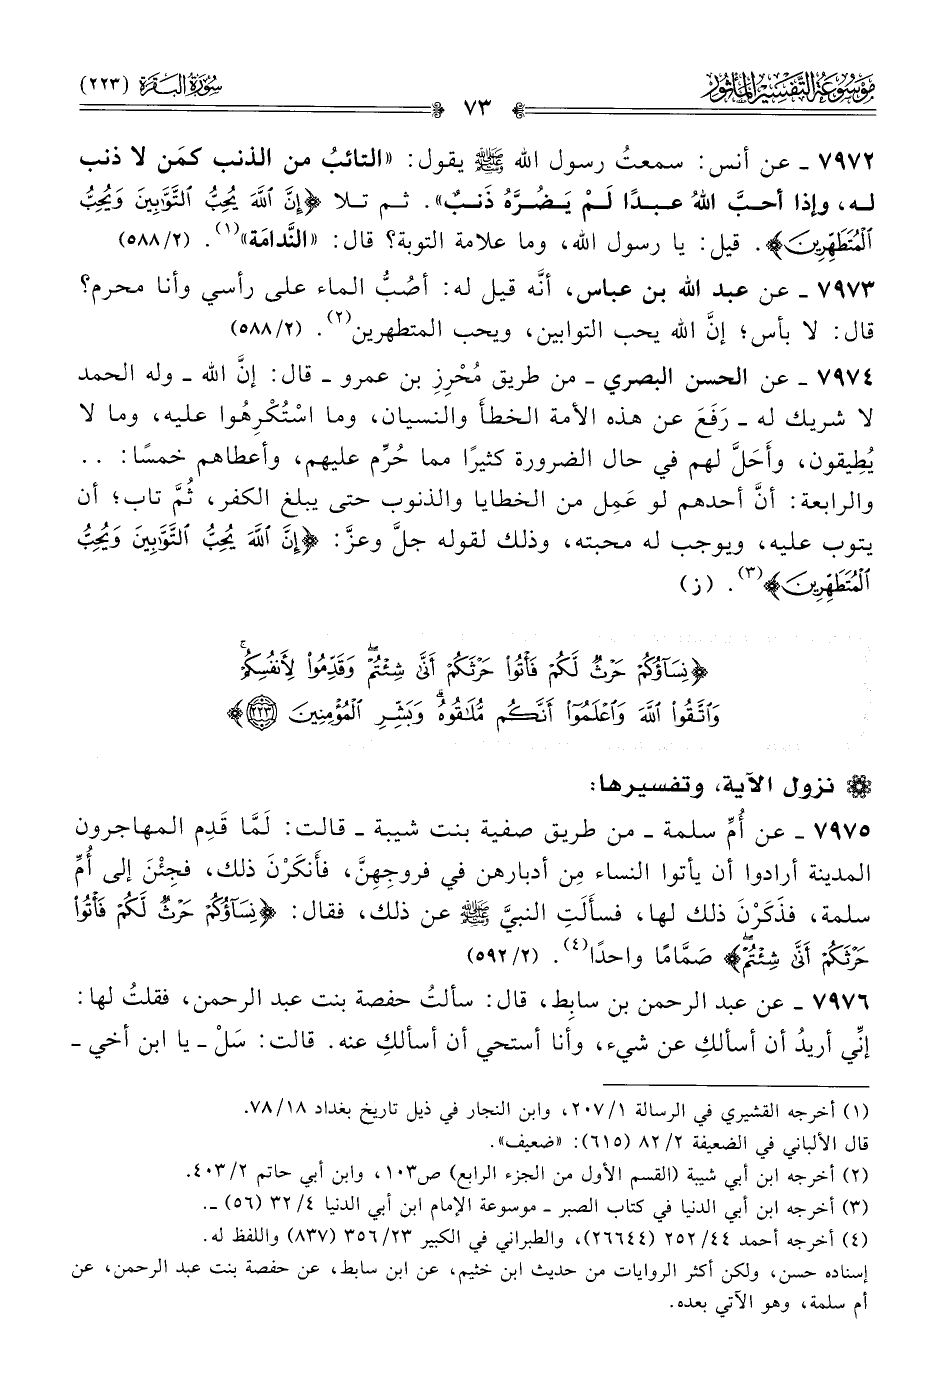 مَوْسُوعَة التَّفْسِيْرِ المَأْثُور
سُورَةُ البَقَرَةِ (٢٢٣)
٧٣
٧٩٧٢ ـ عن أنس: سمعتُ رسول الله ﷺ يقول: «التائبُ من الذنب كمَن لا ذنب
له، وإذا أحبَّ اللهُ عبدًا لَمْ يَضُرَّهُ ذَنبٌ». ثم تلا ﴿إِنَّ ٱللَّهَ يُحِبُّ ٱلتَّوَّٰبِينَ وَيُحِبُّ
ٱلْمُتَطَهِّرِينَ﴾. قيل: يا رسول الله، وما علامة التوبة؟ قال: «النَّدامَة»(١). (٥٨٨/٢)
٧٩٧٣ ـ عن عبد الله بن عباس، أنَّه قيل له: أصُبُّ الماء على رأسي وأنا محرم؟
قال: لا بأس؛ إنَّ الله يحب التوابين، ويحب المتطهرين(٢). (٥٨٨/٢)
٧٩٧٤ ـ عن الحسن البصري ـ من طريق مُحْرِزِ بن عمرو ـ قال: إنَّ الله ـ وله الحمد
لا شريك له ـ رَفَعَ عن هذه الأمة الخطأَ والنسيان، وما اسْتُكْرِهُوا عليه، وما لا
يُطِيقون، وأحَلَّ لهم في حال الضرورة كثيرًا مما حُرِّم عليهم، وأعطاهم خمسًا: ..
والرابعة: أنَّ أحدهم لو عَمِل من الخطايا والذنوب حتى يبلغ الكفر، ثُمَّ تاب؛ أن
يتوب عليه، ويوجب له محبته، وذلك لقوله جلَّ وعزَّ: ﴿إِنَّ ٱللَّهَ يُحِبُّ ٱلتَّوَّٰبِينَ وَيُحِبُّ
ٱلْمُتَطَهِّرِينَ﴾(٣). (ز)
﴿نِسَآؤُكُمْ حَرْثٌ لَّكُمْ فَأْتُوا۟ حَرْثَكُمْ أَنَّىٰ شِئْتُمْ ۖ وَقَدِّمُوا۟ لِأَنفُسِكُمْ ۚ
وَٱتَّقُوا۟ ٱللَّهَ وَٱعْلَمُوٓا۟ أَنَّكُم مُّلَٰقُوهُ ۗ وَبَشِّرِ ٱلْمُؤْمِنِينَ ٢٢٣﴾
نزول الآية، وتفسيرها:
٧٩٧٥ ـ عن أُمِّ سلمة ـ من طريق صفية بنت شيبة ـ قالت: لَمَّا قَدِم المهاجرون
المدينة أرادوا أن يأتوا النساء مِن أدبارهن في فروجِهِنَّ، فأَنكَرْنَ ذلك، فجِئْنَ إلى أُمِّ
سلمة، فذَكَرْنَ ذلك لها، فسألَتِ النبيَّ ﷺ عن ذلك، فقال: ﴿نِسَآؤُكُمْ حَرْثٌ لَّكُمْ فَأْتُوا۟
حَرْثَكُمْ أَنَّىٰ شِئْتُمْ ۖ﴾ صَمَّامًا واحدًا(٤). (٥٩٢/٢)
٧٩٧٦ ـ عن عبد الرحمن بن سابِط، قال: سألتُ حفصة بنت عبد الرحمن، فقلتُ لها:
إنِّي أريدُ أن أسألكِ عن شيء، وأنا أستحي أن أسألكِ عنه. قالت: سَلْ ـ يا ابن أخي ـ
(١) أخرجه القشيري في الرسالة ٢٠٧/١، وابن النجار في ذيل تاريخ بغداد ٧٨/١٨.
قال الألباني في الضعيفة ٨٢/٢ (٦١٥): «ضعيف».
(٢) أخرجه ابن أبي شيبة (القسم الأول من الجزء الرابع) ص١٠٣، وابن أبي حاتم ٤٠٣/٢.
(٣) أخرجه ابن أبي الدنيا في كتاب الصبر ـ موسوعة الإمام ابن أبي الدنيا ٣٢/٤ (٥٦) ـ.
(٤) أخرجه أحمد ٢٥٢/٤٤ (٢٦٦٤٤)، والطبراني في الكبير ٣٥٦/٢٣ (٨٣٧) واللفظ له.
إسناده حسن، ولكن أكثر الروايات من حديث ابن خثيم، عن ابن سابط، عن حفصة بنت عبد الرحمن، عن
أم سلمة، وهو الآتي بعده.